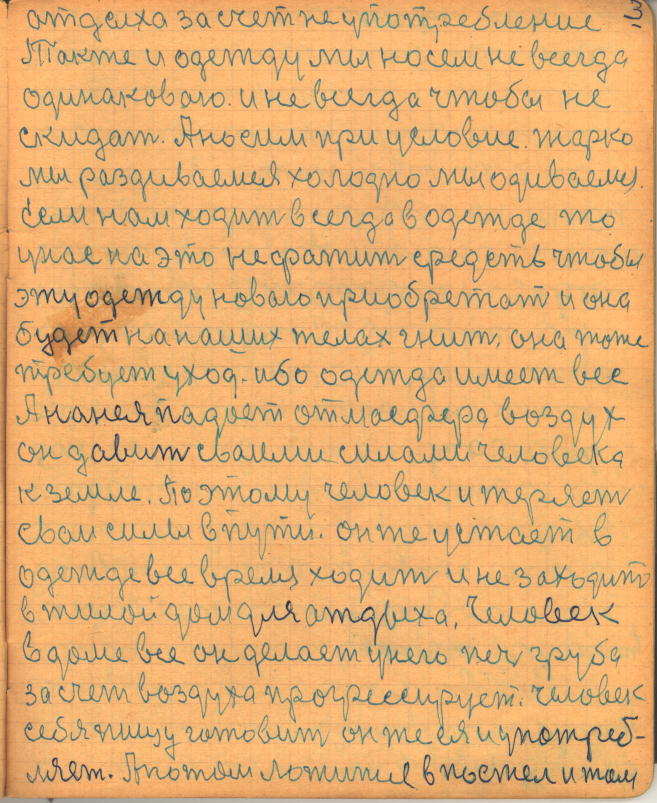 3
отдыха за счет не употребление
Также и одежду мы носем не всегда
одинаковаго. и не всегда чтобы не
скидат. А носим при условие. жарко
мы раздиваемся холодно мы одиваемся.
Если нам ходит всегда в одежде то
унас на это не фатит средств чтобы
эту одежду новаго приобретат и она
будет на наших телах гнит, она тоже
требует уход. ибо одежда имеет вес
А на нея падает отмасфера воздух
он давит своими силами человека
к земле. Поэтому человек и теряет
свои силы в пути. он же устает в
одежде все время ходит и не заходит
в жилой дом для атдыха, Человек
в доме все он делает у него печ груба
за счет воздуха прогрессирует. человек
себя пищу готовит он же ея и употреб-
ляет. А потом ложится в постел и там